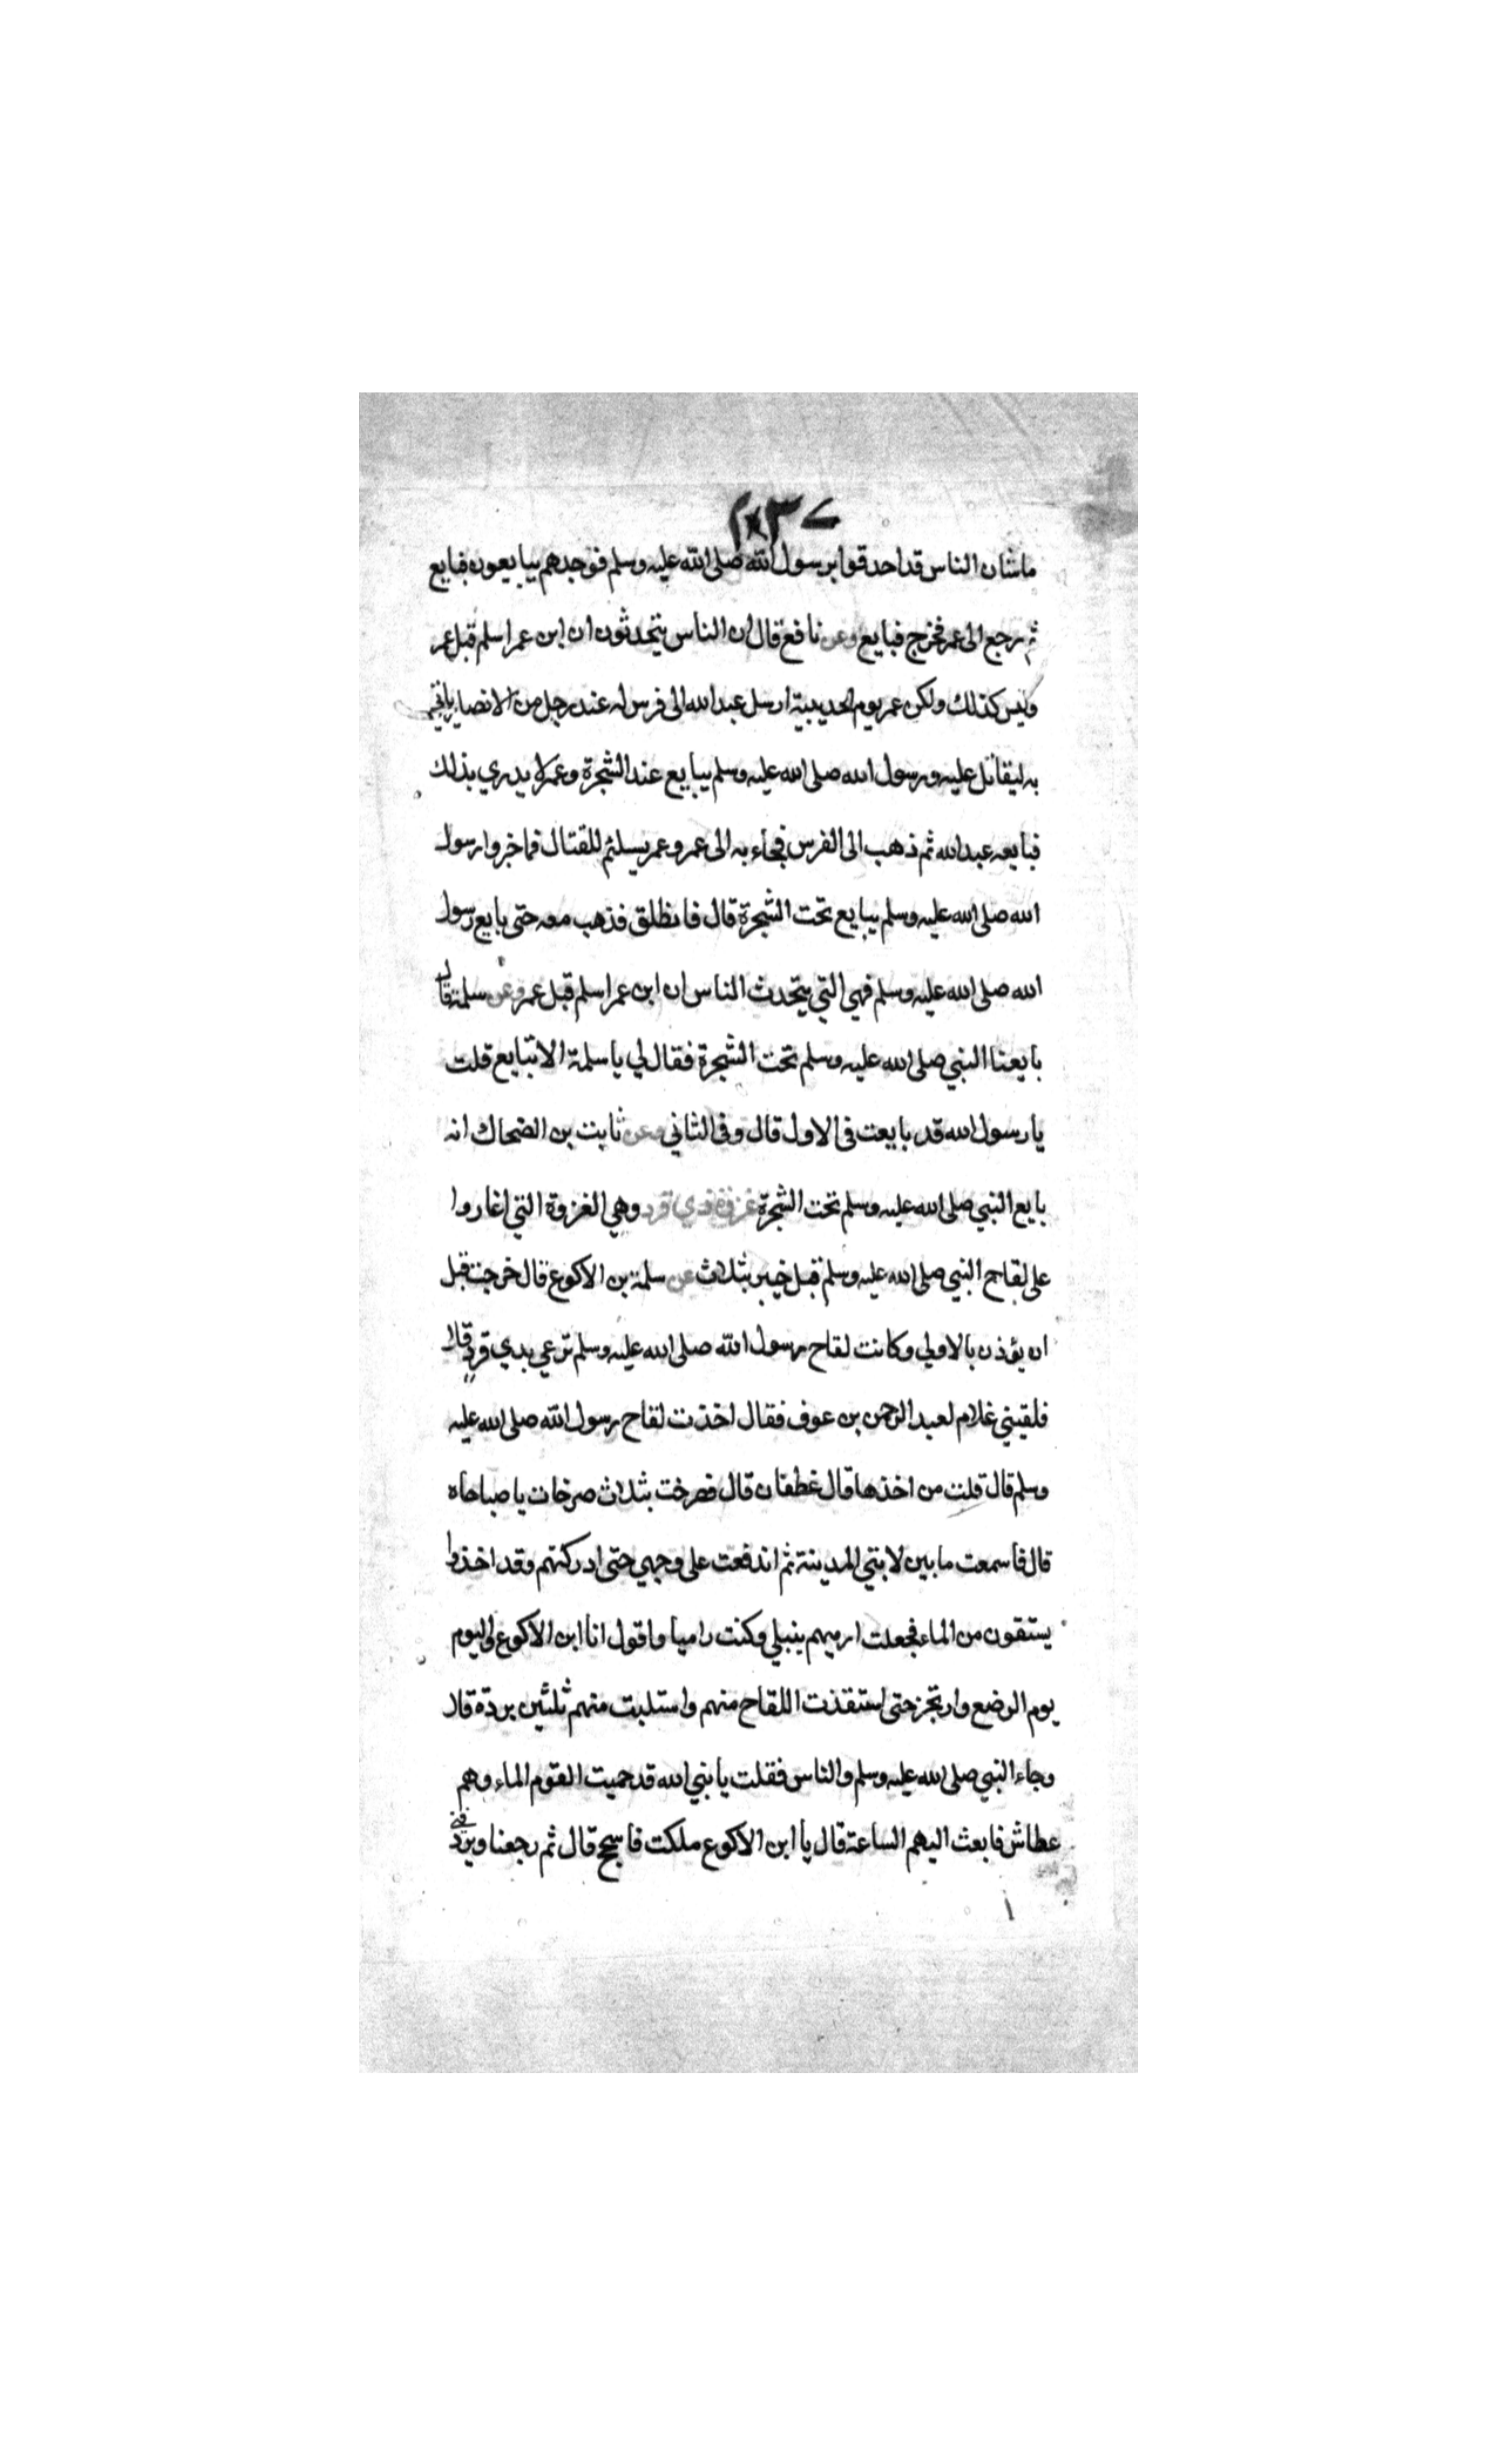 ما شان الناس قد احدقوا برسول الله صلى الله عليه وسلم فوجدهم يبايعون فبايع
ثم رجع الى عمر فخرج فبايع وعن نافع قال ان الناس يتحدثون ان ابن عمر اسلم قبل عمر
وليس كذلك ولكن عمر يوم الحديبية ارسل عبد الله الى فرس له عند رجل من الانصار
به ليقاتل عليه ورسول الله صلى الله عليه وسلم يبايع عند الشجرة وعمر لا يدري بذلك
فبايعه عبد الله ثم ذهب الى الفرس فجاء به الى عمر وعمر يستلئم للقتال فاخبره ان رسول
الله صلى الله عليه وسلم يبايع تحت الشجرة قال فانطلق فذهب معه حتى بايع رسول
الله صلى الله عليه وسلم فهي التي يتحدث الناس ان ابن عمر اسلم قبل عمر وعن سلمة قال
بايعنا النبي صلى الله عليه وسلم تحت الشجرة فقال لي يا سلمة الا تبايع قلت
يا رسول الله قد بايعت في الاول قال وفي الثاني وعن ثابت بن الضحاك انه
بايع النبي صلى الله عليه وسلم تحت الشجرة غزوة ذي قرد وهي الغزوة التي اغاروا
على لقاح النبي صلى الله عليه وسلم قبل خيبر بثلاث عن سلمة بن الاكوع قال خرجت قبل
ان يؤذن بالاولي وكانت لقاح رسول الله صلى الله عليه وسلم ترعي بذي قرد قال
فلقيني غلام لعبد الرحمن بن عوف فقال اخذت لقاح رسول الله صلى الله عليه
وسلم قال قلت من اخذها قال غطفان قال فصرخت بثلاث صرخات يا صباحاه
قال فاسمعت ما بين لابتي المدينة ثم اندفعت على وجهي حتى ادركتهم وقد اخذوا
يستقون من الماء فجعلت ارميهم بنبلي وكنت راميا واقول انا ابن الاكوع واليوم
يوم الرضع وارتجز حتى استنقذت اللقاح منهم واستلبت منهم ثلثين بردة قال
وجاء النبي صلى الله عليه وسلم والناس فقلت يا نبي الله قد حميت القوم الماء وهم
عطاش فابعث اليهم الساعة قال يا ابن الاكوع ملكت فاسجح قال ثم رجعنا ويردفني